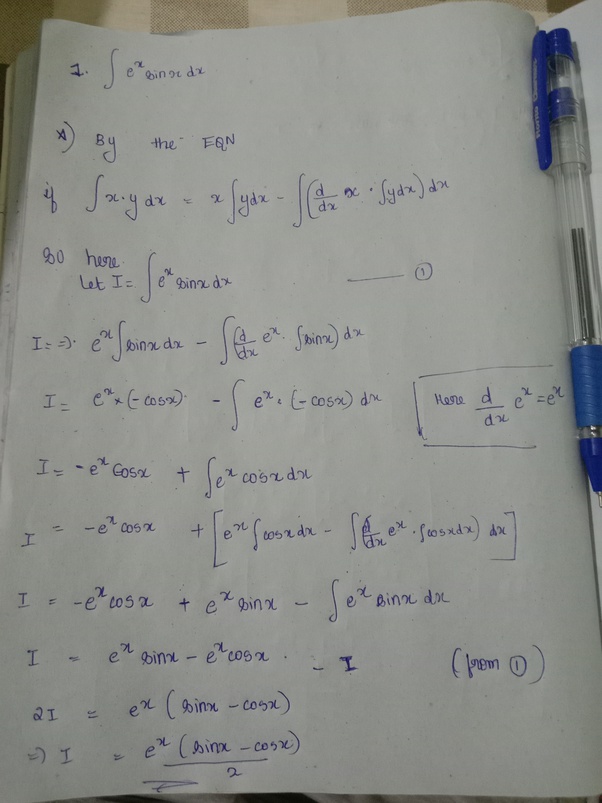 1. ∫ e^x sinx dx
A) By the EQN
if ∫ x·y dx = x ∫ydx - ∫(d/dx x · ∫ydx) dx
so here
Let I = ∫ e^x sinx dx ——— ①
I = ⇒ e^x ∫sinx dx - ∫(d/dx e^x · ∫sinx) dx
I = e^x × (-cosx) - ∫ e^x · (-cosx) dx [Here d/dx e^x = e^x
I = -e^x cosx + ∫e^x cosx dx
I = -e^x cosx + [e^x ∫cosx dx - ∫(d/dx e^x · ∫cosxdx) dx]
I = -e^x cosx + e^x sinx - ∫e^x sinx dx
I = e^x sinx - e^x cosx - I (from ①)
2I = e^x (sinx - cosx)
⇒ I = e^x (sinx - cosx)/2